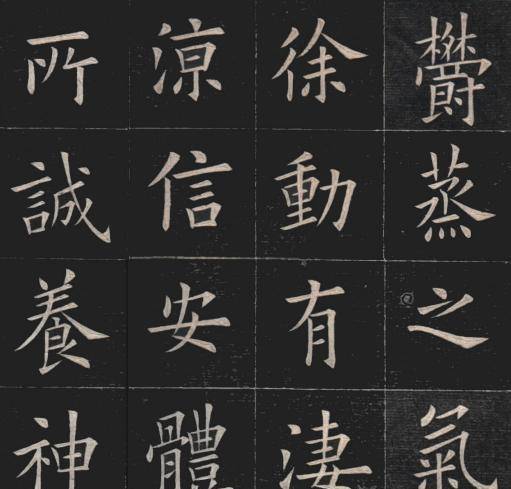 欝蒸之氣
徐動有淒
涼信安體
所誠養神